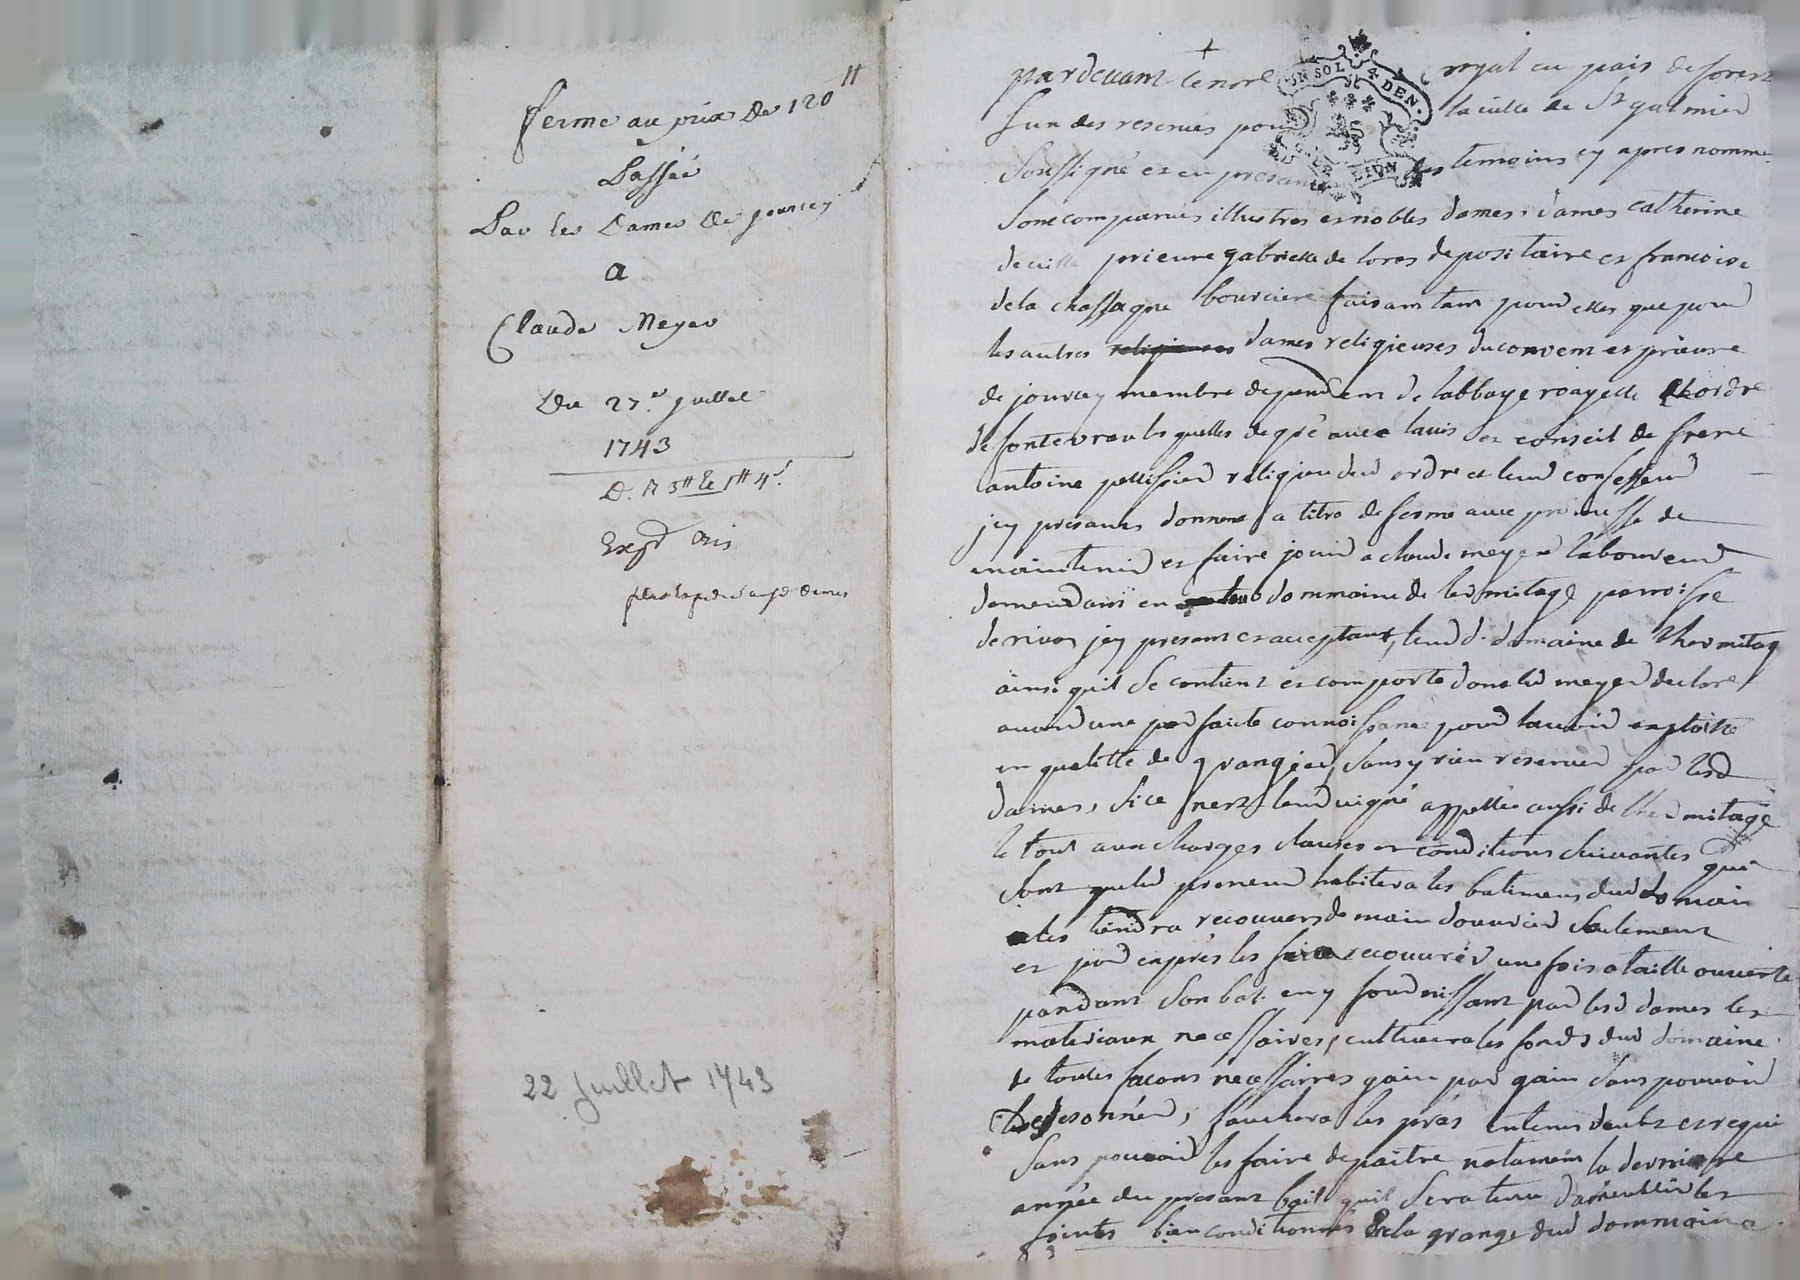 ferme au prix de 120 ₶
Passée
Par les Dames de Jourcey
a
Claude Meyer
Du 27.e Juillet
1743
Exp.d
22 Juillet 1743
UN SOL 4 DEN.
LION
pardevant le no.re royal en pais de forest
l'un des reservés pour la ville de St galmier
soussigné et en presance des temoins cy apres nommé
sont comparues illustres et nobles dames, dames catherine
deville prieure gabrielle de loras depositaire et francoise
de la chassagne bourciere faisant tant pour elles que pour
les autres religieuses dames religieuses du convent et prieuré
de jourcey membre dependent de labbaye roayelle ordre
de fontevrau lesquelles de gré avec lavis et conseil de frere
antoine pellissier religieux dud ordre et leur confesseur
jcy presants donnent a titre de ferme avec promesse de
maintenir et faire jouir a claude meyer laboureur
demeurant en dommaine de lermitage parroisse
de rivas jcy present et acceptant, leur d. domaine de lhermitage
ainsi quil se contient et comporte dont led meyer declare
avoir une parfaite connoissance pour lavoir exploité
en qualitté de granger, sans y rien reserver par lesd
dames, si ce nest leur vigne appellée aussi de lhermitage
le tout aux charges clauses et conditions suivantes qui
sont que led preneur habitera les batimens dud domain
les tiendra recouvers de main douvrier seulement
et par exprés les faire recouvrir une fois a taille ouverte
pandant son bail en y fournissant par lesd dames les
materiaux necessaires, cultivera les fonds dud domaine
de toutes facons necessaires gain par gain sans pouvoir
les desonner, fauchera les prés en tems deubt et requi
sans pouvoir les faire depaitre notament la derniere
année du present bail quil sera tenu dameublir les
foints bien conditionnés en la grange dud dommaine